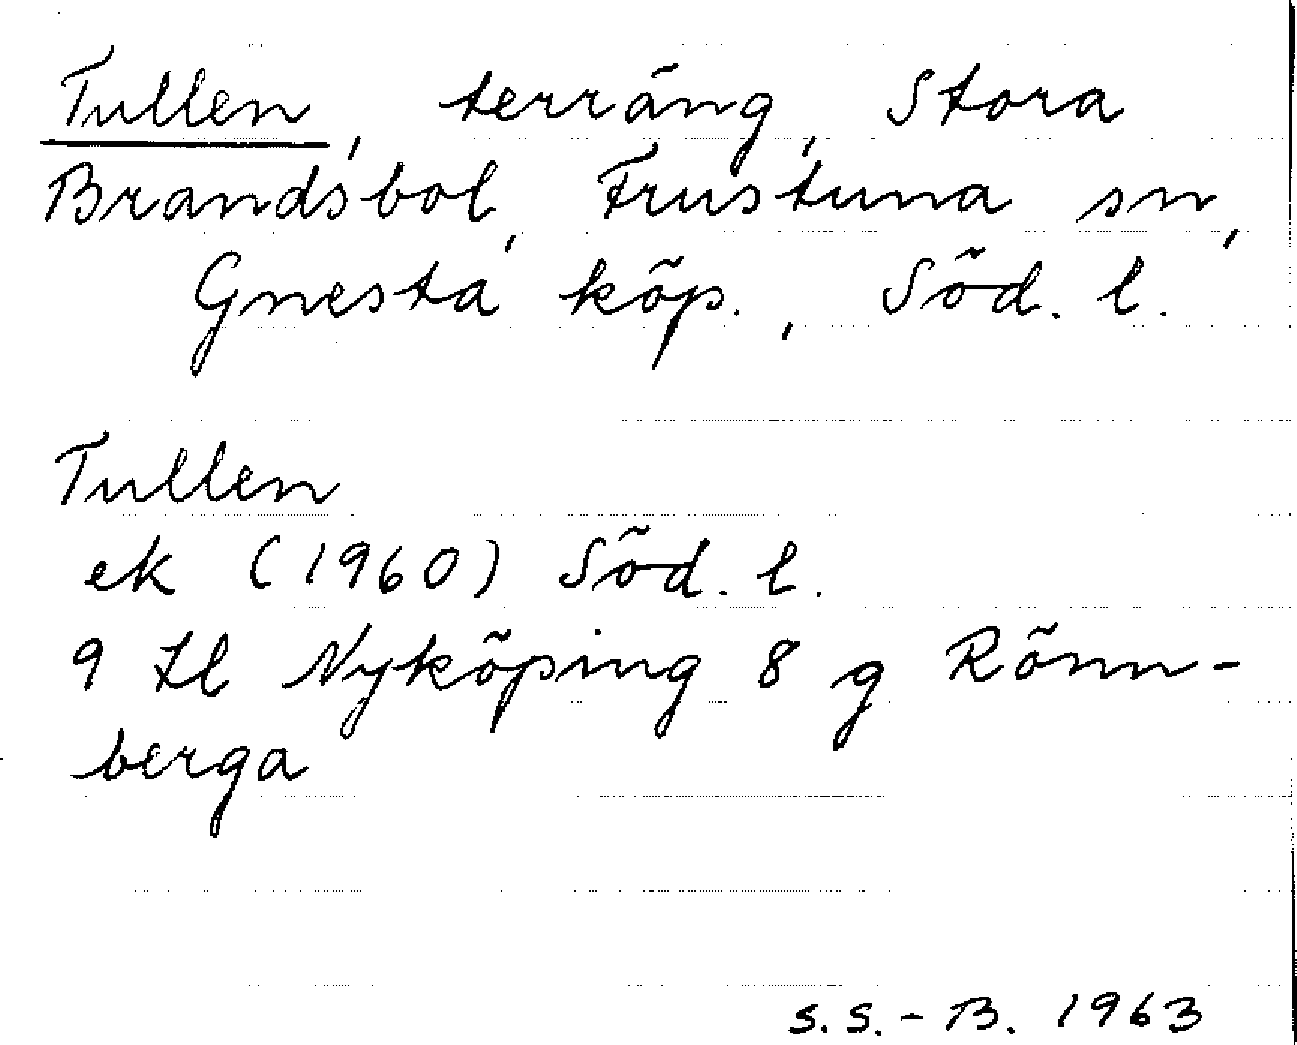 Tullen, terräng, Stora
Brandsbol, Frustuna sn,
Gnesta köp., Söd. l.
Tullen
ek (1960) Söd. l.
9 H l Nyköping 8 g Rönn-
berga
S.S.-B. 1963